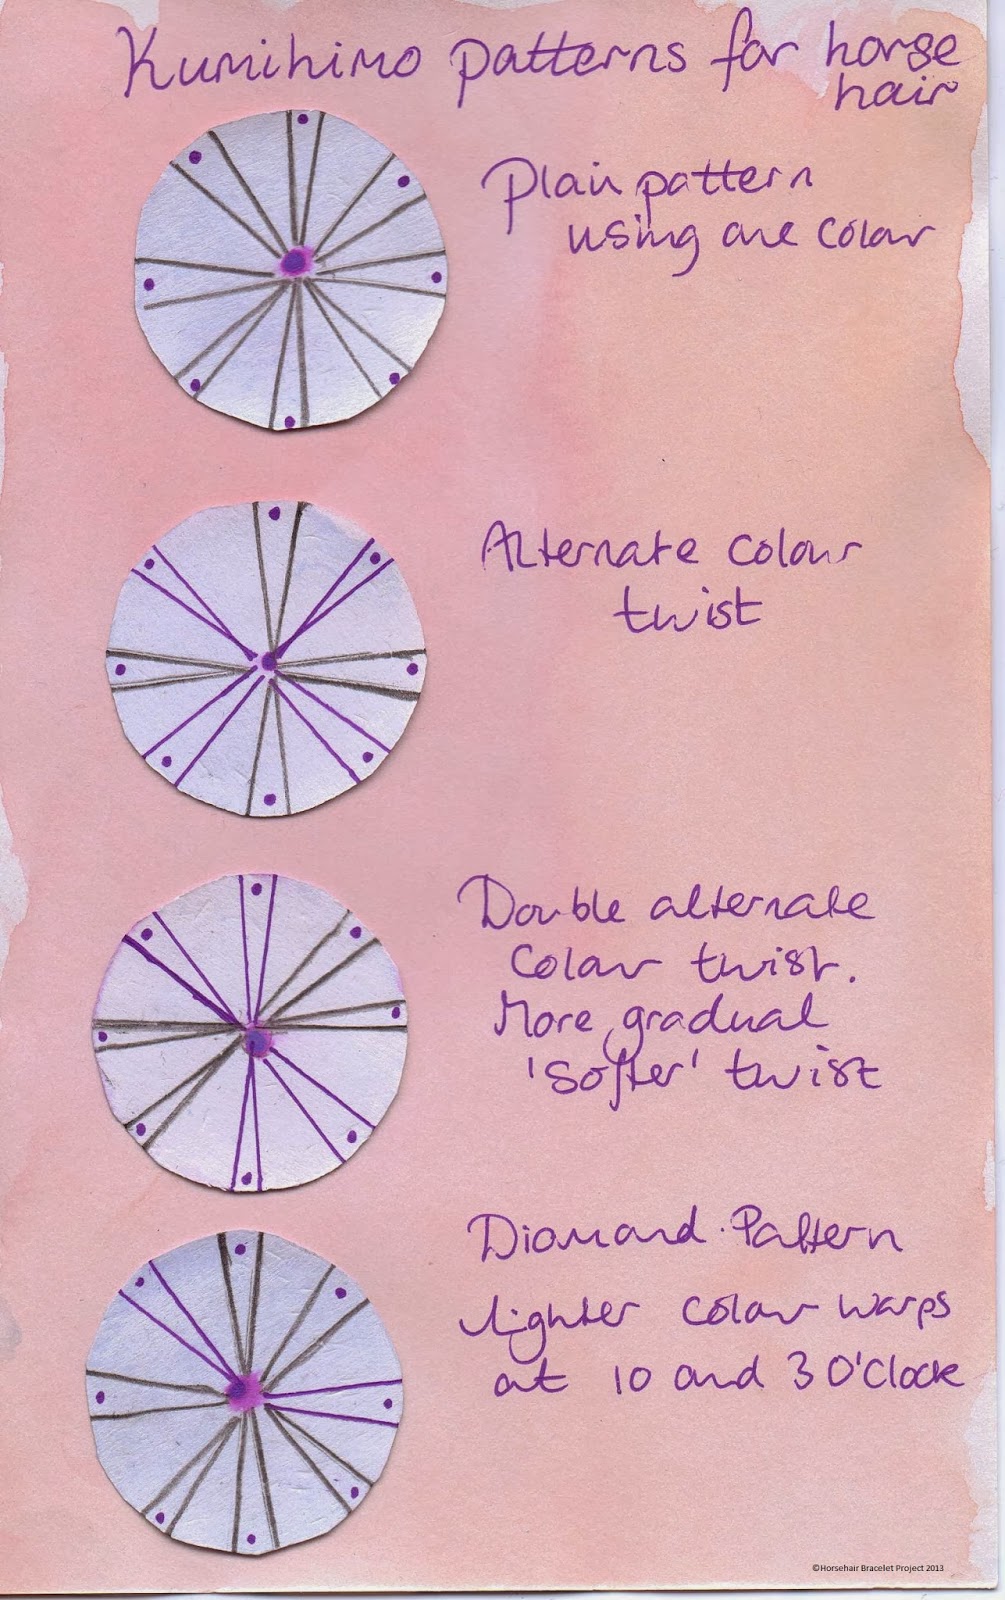 Kumihimo patterns for horse
hair
Plain pattern
using one colour
Alternate colour
twist
Double alternate
Colour twist.
More gradual
'softer' twist
Diamond Pattern
Lighter colour warps
at 10 and 3 O'Clock
©Horsehair Bracelet Project 2013